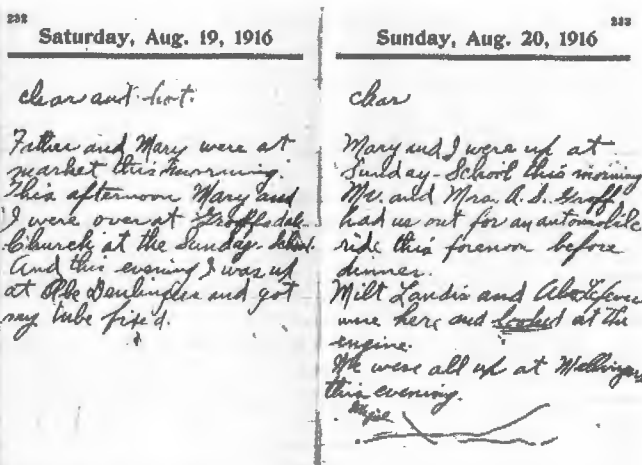 232
Saturday, Aug. 19, 1916
clear and hot.
Father and Mary were at
market this morning.
This afternoon Mary and
I were over at Groffsdale
Church at the Sunday-School.
And this evening I was up
at Abe Denlingers and got
my tube fixed.
233
Sunday, Aug. 20, 1916
clear
Mary and I were up at
Sunday-School this morning
Mr. and Mrs. A. S. Groff
had us out for an automobile
ride this forenoon before
dinner.
Milt Landis and Abe
were here and looked at the
engine.
We were all up at
this evening.